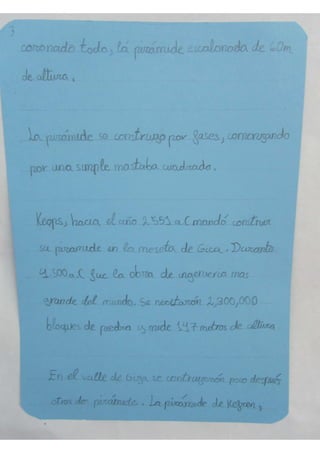 3
coronado todo, la pirámide escalonada de 60m
de altura.
La pirámide se construyo por fases, comenzando
por una simple mastaba cuadrado.
Keops, hacia el año 2.551 a.C mandó construir
su piramide en la meseta de Giza. Durante
4.500 a.C fue la obra de ingenieria mas
grande del mundo. Se necesitaron 2,300,000
bloques de piedra y mide 147 metros de altura
En el valle de Giza se contruyerón poco después
otras dos pirámide. La pirámide de Kefren,